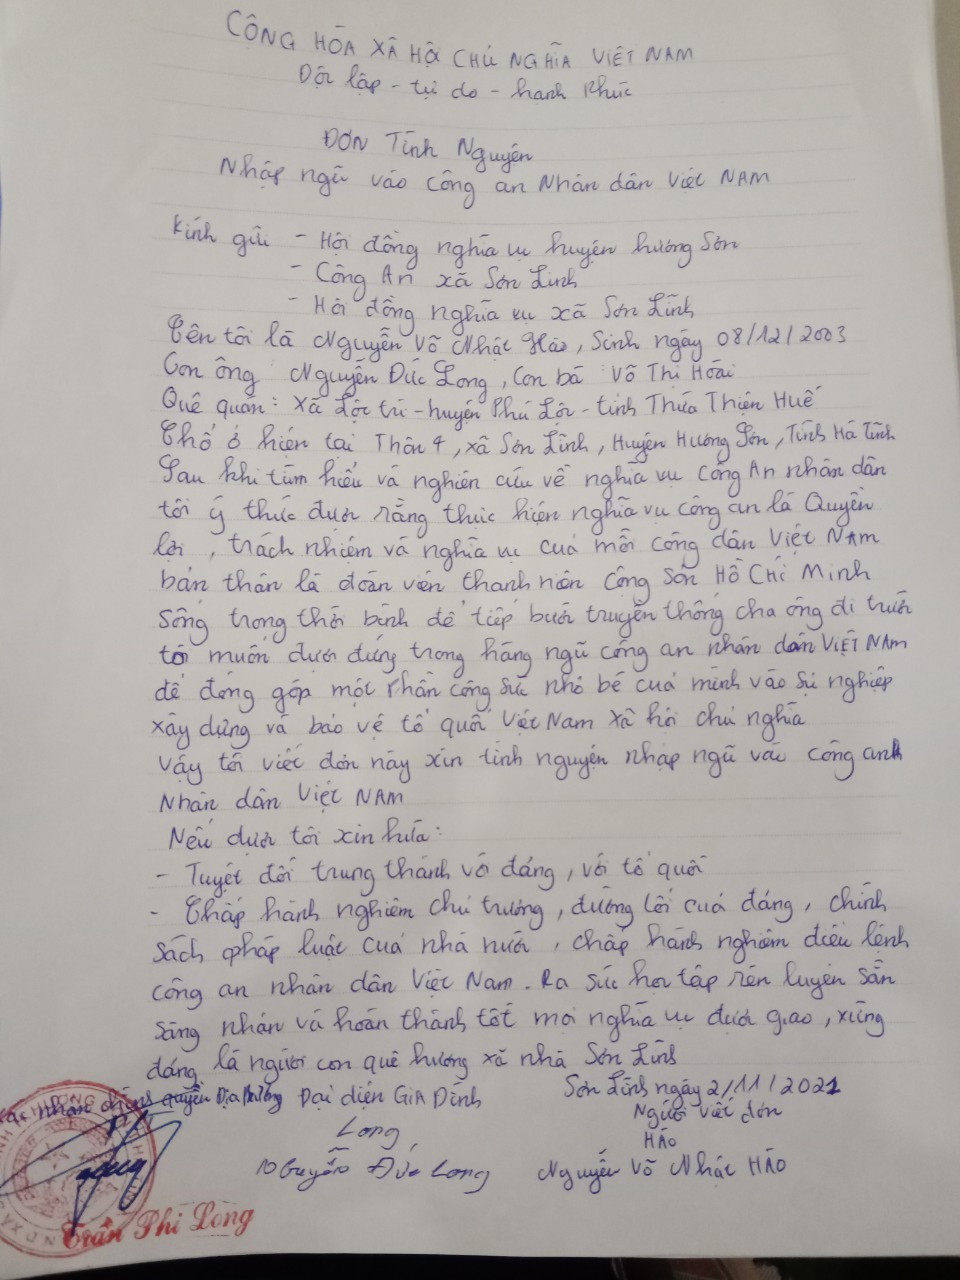 CỘNG HÒA XÃ HỘI CHỦ NGHĨA VIỆT NAM
Độc lập - tự do - hạnh Phúc
ĐƠN Tình Nguyện
Nhập ngũ vào Công an Nhân dân Việt NAM
Kính gửi - Hội đồng nghĩa vụ huyện hương Sơn
- Công An xã Sơn Lĩnh
- Hội đồng nghĩa vụ xã Sơn Lĩnh
Tên tôi là Nguyễn Võ Nhật Hào, Sinh ngày 08/12/2003
Con ông Nguyễn Đức Long, Con bà Võ Thị Hoài
Quê quán: Xã Lộc trì - huyện Phú Lộc - tỉnh Thừa Thiên Huế
Chổ ở hiện tại Thôn 4, xã Sơn Lĩnh, Huyện Hương Sơn, Tỉnh Hà Tĩnh
Sau khi tìm hiểu và nghiên cứu về nghĩa vụ Công An nhân dân
tôi ý thức được rằng thực hiện nghĩa vụ công an là Quyền
lợi, trách nhiệm và nghĩa vụ của mỗi công dân Việt NAM
bản thân là đoàn viên thanh niên Cộng Sản HỒ CHÍ Minh
Sống trong thời bình để tiếp bước truyền thống cha ông đi trước
tôi muốn được đứng trong hàng ngũ công an nhân dân VIỆT NAM
để đóng góp một Phần công sức nhỏ bé của mình vào sự nghiệp
xây dựng và bảo vệ tổ quốc Việt Nam Xã hội chủ nghĩa
Vậy tôi viết đơn này xin tình nguyện nhập ngũ vào công anh
Nhân dân Việt NAM
Nếu được tôi xin hứa:
- Tuyệt đối trung thành với đảng, với tổ quốc
- Chấp hành nghiêm chủ trương, đường lối của đảng, chính
Sách pháp luật của nhà nước, chấp hành nghiêm điều lệnh
công an nhân dân Việt Nam. Ra sức học tập rèn luyện sẵn
sàng nhận và hoàn thành tốt mọi nghĩa vụ được giao, xứng
đáng là người con quê hương xã nhà Sơn Lĩnh
Sơn Lĩnh ngày 2/11/2021
nhận chính quyền Địa Phương Đại diện GIA Đình Người viết đơn
Long HÀO
Nguyễn Đức Long Nguyễn Võ Nhật HÀO
Trần Phi Long